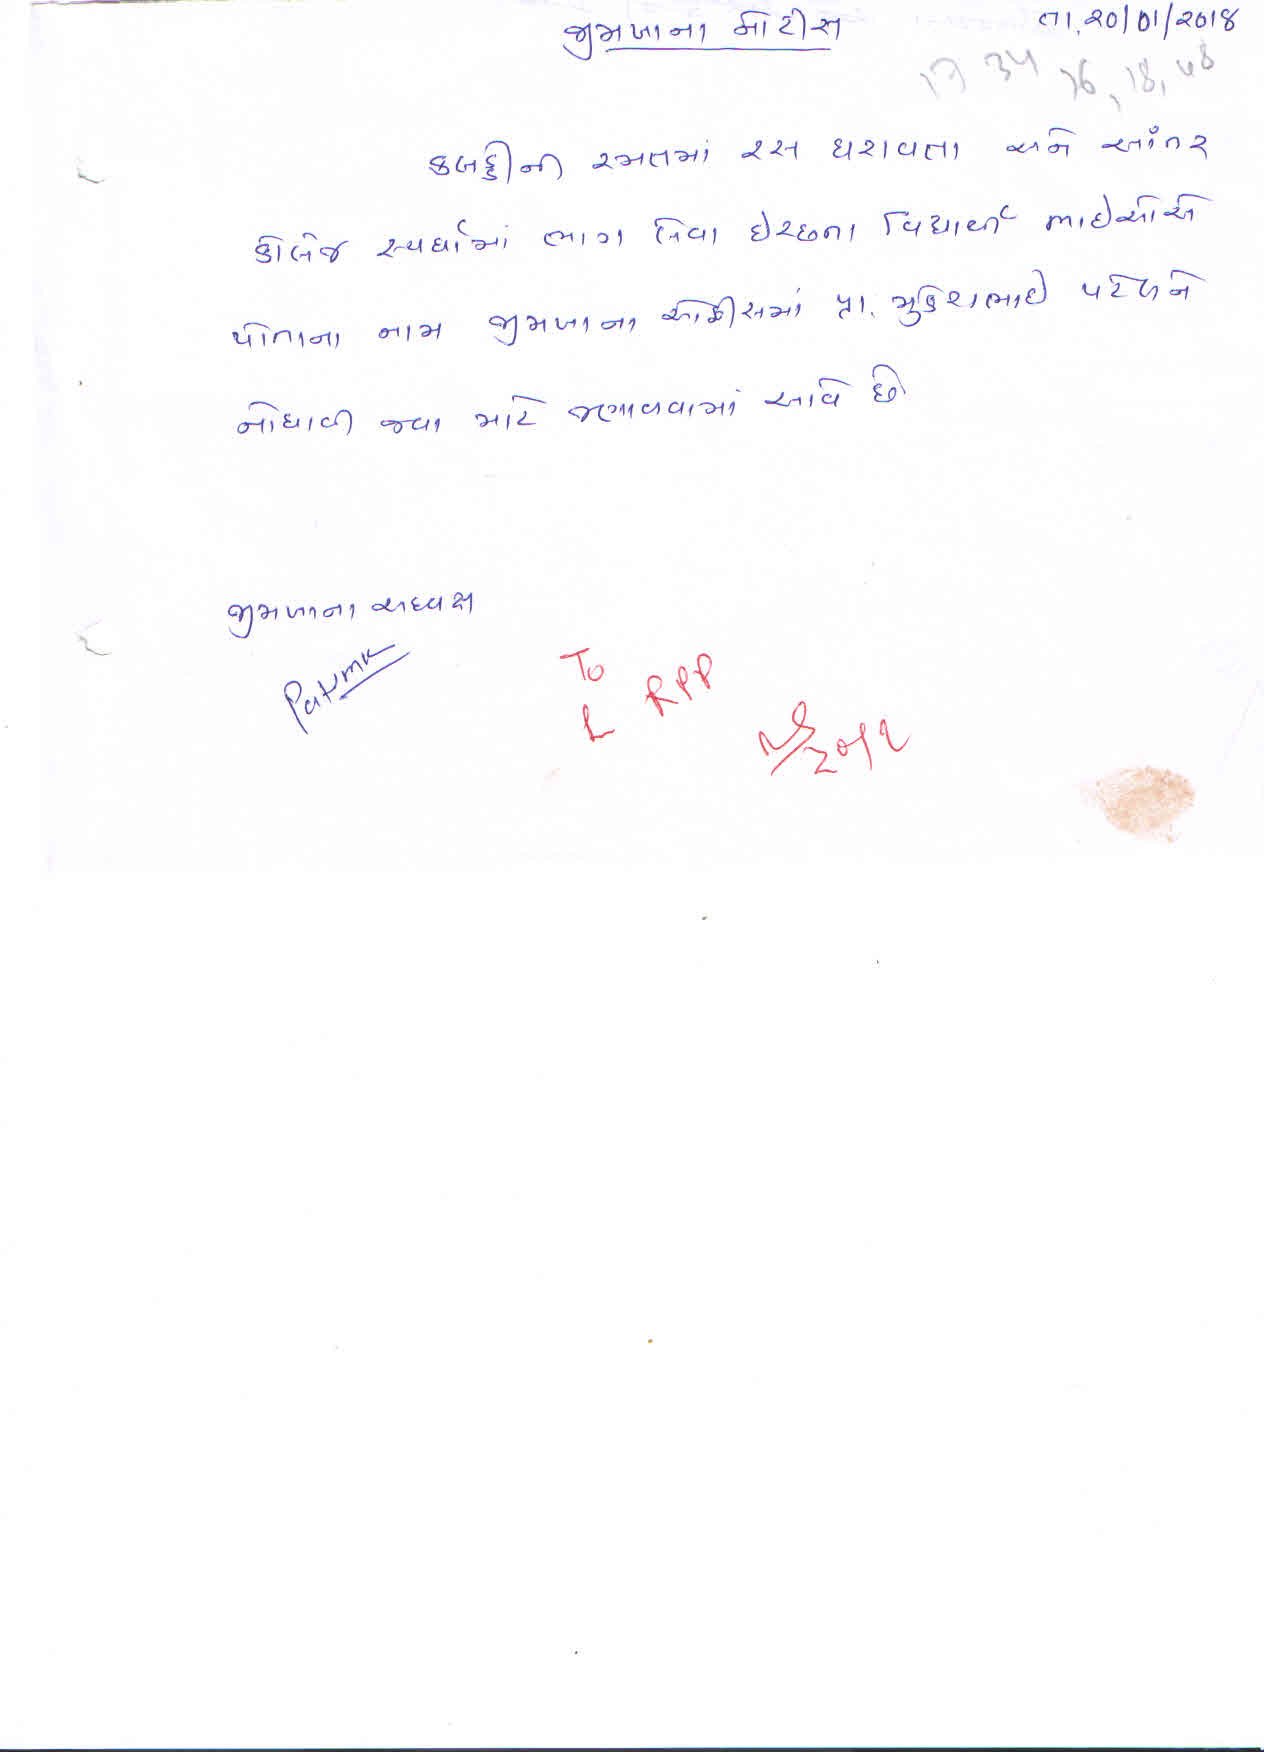 જીમખાના નોટીસ
તા. 20/01/2018
17 34 16, 18, 48
કબડ્ડીની રમતમાં રસ ધરાવતા અને આંતર
કોલેજ સ્પર્ધામાં ભાગ લેવા ઈચ્છતા વિદ્યાર્થી ભાઈઓએ
પોતાના નામ જીમખાના ઓફીસમાં પ્રા. મુકેશભાઈ પટેલને
નોંધાવી જવા માટે જણાવવામાં આવે છે.
જીમખાના અધ્યક્ષ
To
RPP
L